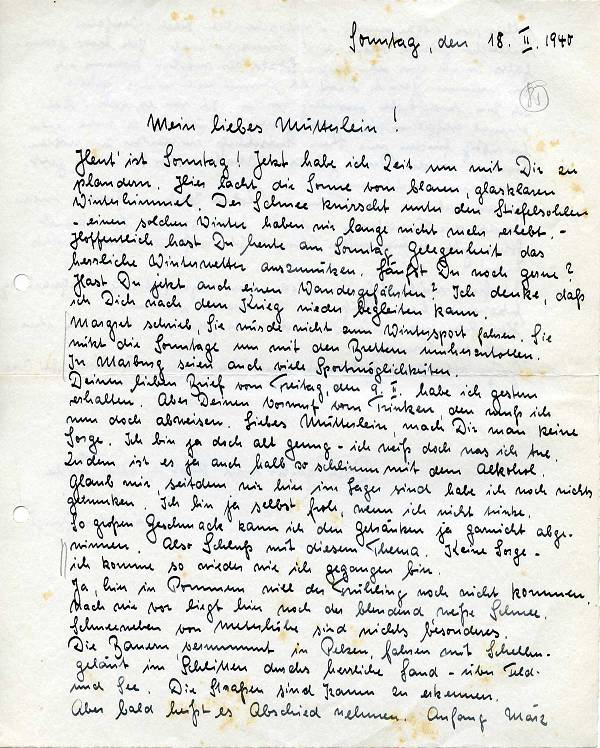 Sonntag, den 18. II. 1940
Mein liebes Mütterlein!
Heut' ist Sonntag! Jetzt habe ich Zeit um mit Dir zu
plaudern. Hier lacht die Sonne vom blauen, glasklaren
Winterhimmel. Der Schnee knirscht unter den Stiefelsohlen
- einen solchen Winter haben wir lange nicht mehr erlebt. -
Hoffentlich hast Du heute am Sonntag Gelegenheit das
herrliche Winterwetter auszunützen. Läufst Du noch gerne?
Hast Du jetzt auch einen Wandergefährten? Ich denke, daß
ich Dich nach dem Krieg wieder begleiten kann.
Margret schrieb, Sie würde nicht zum Wintersport fahren. Sie
nützt die Sonntage um mit den Brettern umherzutollen.
In Marburg seien auch viele Sportmöglichkeiten.
Deinen lieben Brief vom Freitag, den 9. II. habe ich gestern
erhalten. Aber Deinen Vorwurf vom Trinken, den muß ich
nun doch abweisen. Liebes Mütterlein, mach Dir man keine
Sorge. Ich bin ja doch alt genug - ich weiß doch was ich tue.
Zudem ist es ja auch halb so schlimm mit dem Alkohol.
Glaub mir, seitdem wir hier im Lager sind habe ich noch nichts
getrunken. Ich bin ja selbst froh, wenn ich nicht trinke.
So großen Geschmack kann ich den Getränken ja garnicht abge-
winnen. Also Schluß mit diesem Thema. Keine Sorge -
ich komme so wieder wie ich gegangen bin.
Ja, hier in Pommern will der Frühling noch nicht kommen.
Nach wie vor liegt hier noch der blendend weiße Schnee.
Schneewehen von Meterhöhe sind nichts besonderes.
Die Bauern, vermummt in Pelzen, fahren mit Schellen-
geläut im Schlitten durchs herrliche Land - über Feld
und See. Die Straßen sind kaum zu erkennen.
Aber bald heißt es Abschied nehmen. Anfang März